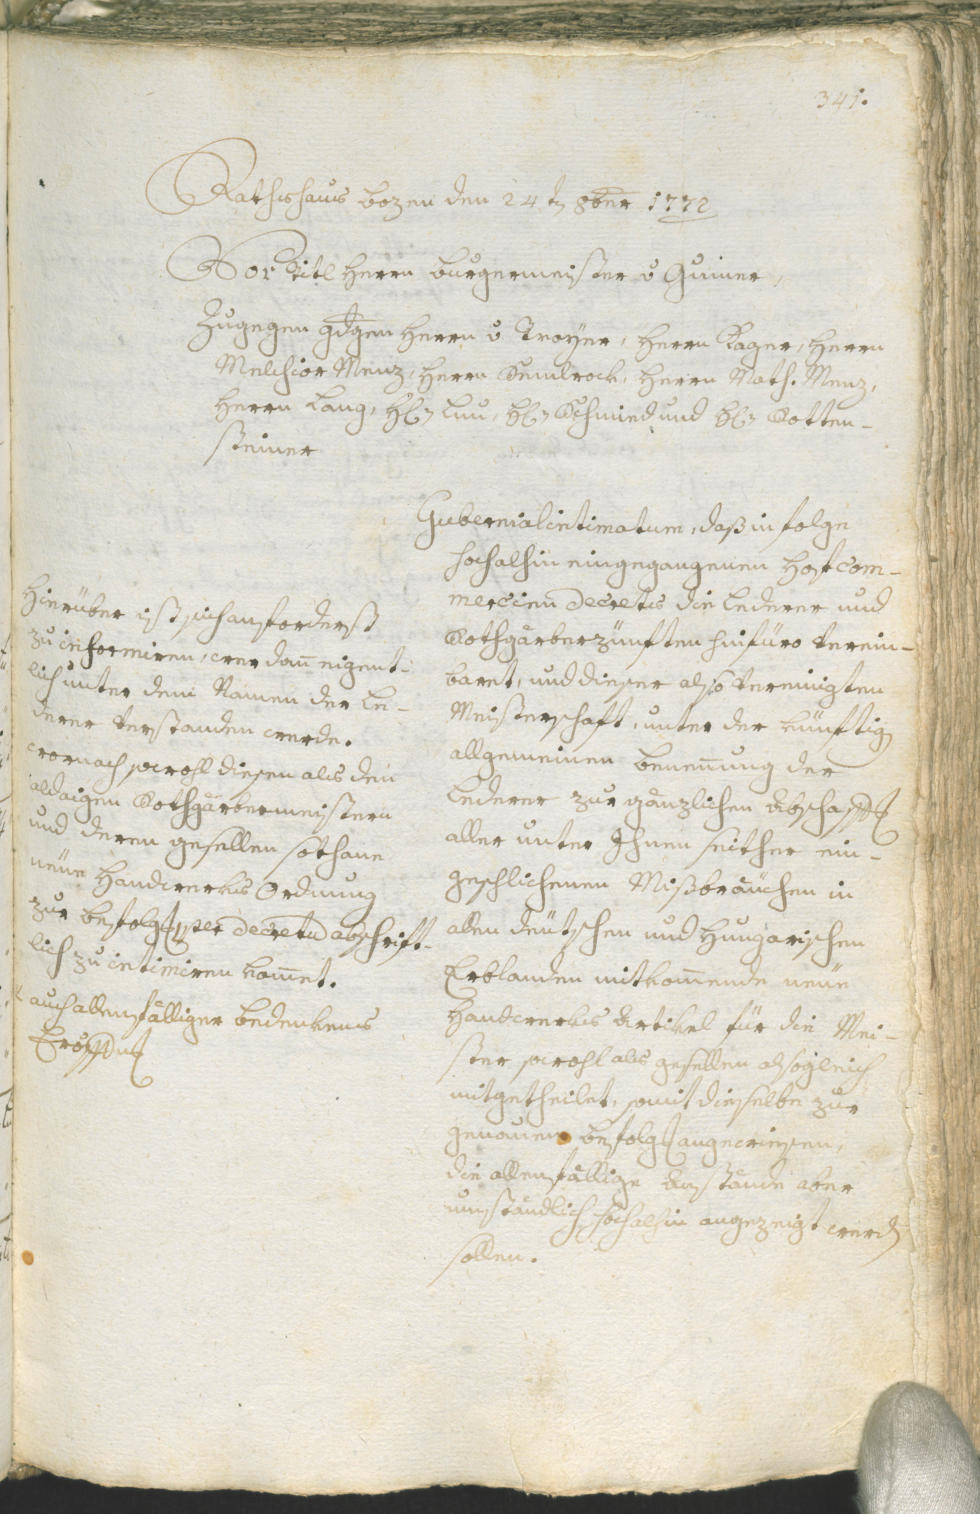 341.
Rathshaus Bozen den 24t 8ber 1772
Vor Titl Herrn Burgermeister v Gumer,
Zugegen gdgen Herrn v Troyer, Herrn Rager, Herrn
Melchior Menz, Herrn Semlrock, Herrn Math. Menz,
Herrn Lang, H: Lun, H: Schmied und H: Kotten-
steiner
Gubernialintimatum, daß in folge
hochalhin eingegangenen Hofcom-
mercien Decretis die Lederer und
Rothgärberzünften hinfüro verein-
baret, und dieser also vereinigten
Meisterschaft, unter der künftig
allgemeinen Benennung der
Lederer zur gänzlichen Abschaffung
aller unter Ihnen seither ein-
geschlichenen Mißbräuchen in
allen deütschen und Hungarischen
Erblanden mitkommende neüe
Handwerks Artikel für die Mei-
ster sowohl als gesellen alsogleich
mitgetheilet, somit dieselbe zur
genauen befolgung angewiesen,
die allenfällige Anstände aber
umständlich hochalhin angezeigt werden
sollen.
Hierüber ist sich anforderst
zu informiren, wer dann eigent-
lich unter dem Namen der Le-
derer verstanden werde.
wornach sowohl diesen als den
aldaigen Rothgärbermeistern
und deren gesellen sothane
neüe Handwerks Ordnung
zur befolgung per decretum abschrift-
lich zu intimiren kommet.
auch allenfälliger bedenkens
Eröffnung